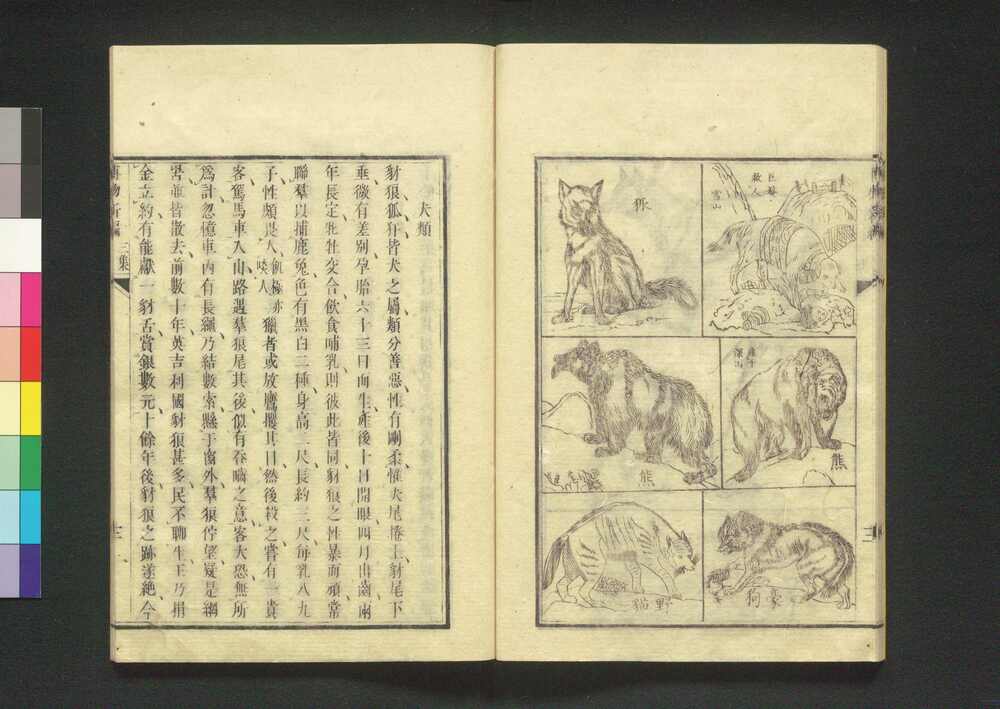 巨獒
救人
雪山
產于
深山
熊
熊
豪狗
野貓
犬類
豺狼狐犴皆犬之屬類分善惡性有剛柔惟犬尾捲上豺尾下
垂微有差別孕胎六十三日而生產後十日開眼四月出齒兩
年長定牝牡交合飲食哺乳則彼此皆同豺狼之性暴而頑常
聯羣以捕鹿兔色有黑白二種身高二尺長約三尺每乳八九
子性頗畏人飢極亦啖人獵者或放鷹攫其目然後殺之嘗有一貴
客駕馬車入山路遇羣狼尾其後似有吞噛之意客大恐無所
爲計忽憶車內有長纙乃結數索懸于窗外羣狼停望疑是網
罟並皆散去前數十年英吉利國豺狼甚多民不聊生王乃捐
金立約有能獻一豺舌賞銀數元十餘年後豺狼之跡遂絕今
博物新編 三集